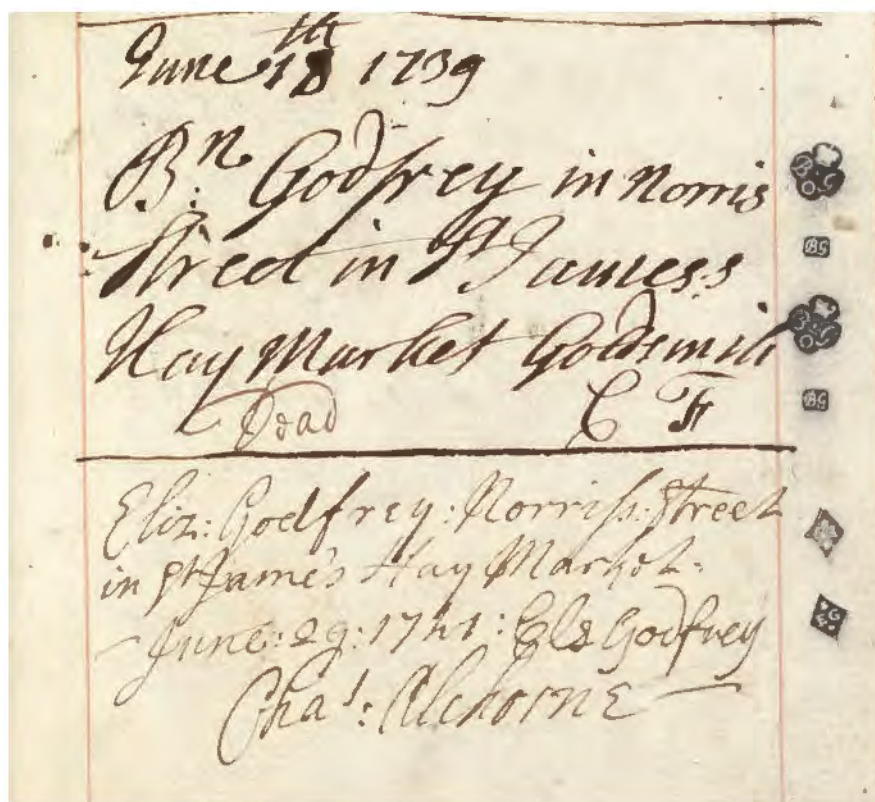 June 18th 1739
Bn: Godfrey in Norris
Street in St Jamess
Hay Market Goldsmith
Dead
Eliz: Godfrey: Norriss: Street
in St Jame's Hay Market.
June: 29: 1741: Elz Godfrey
Chas: Alchorne
BG
BG
EG